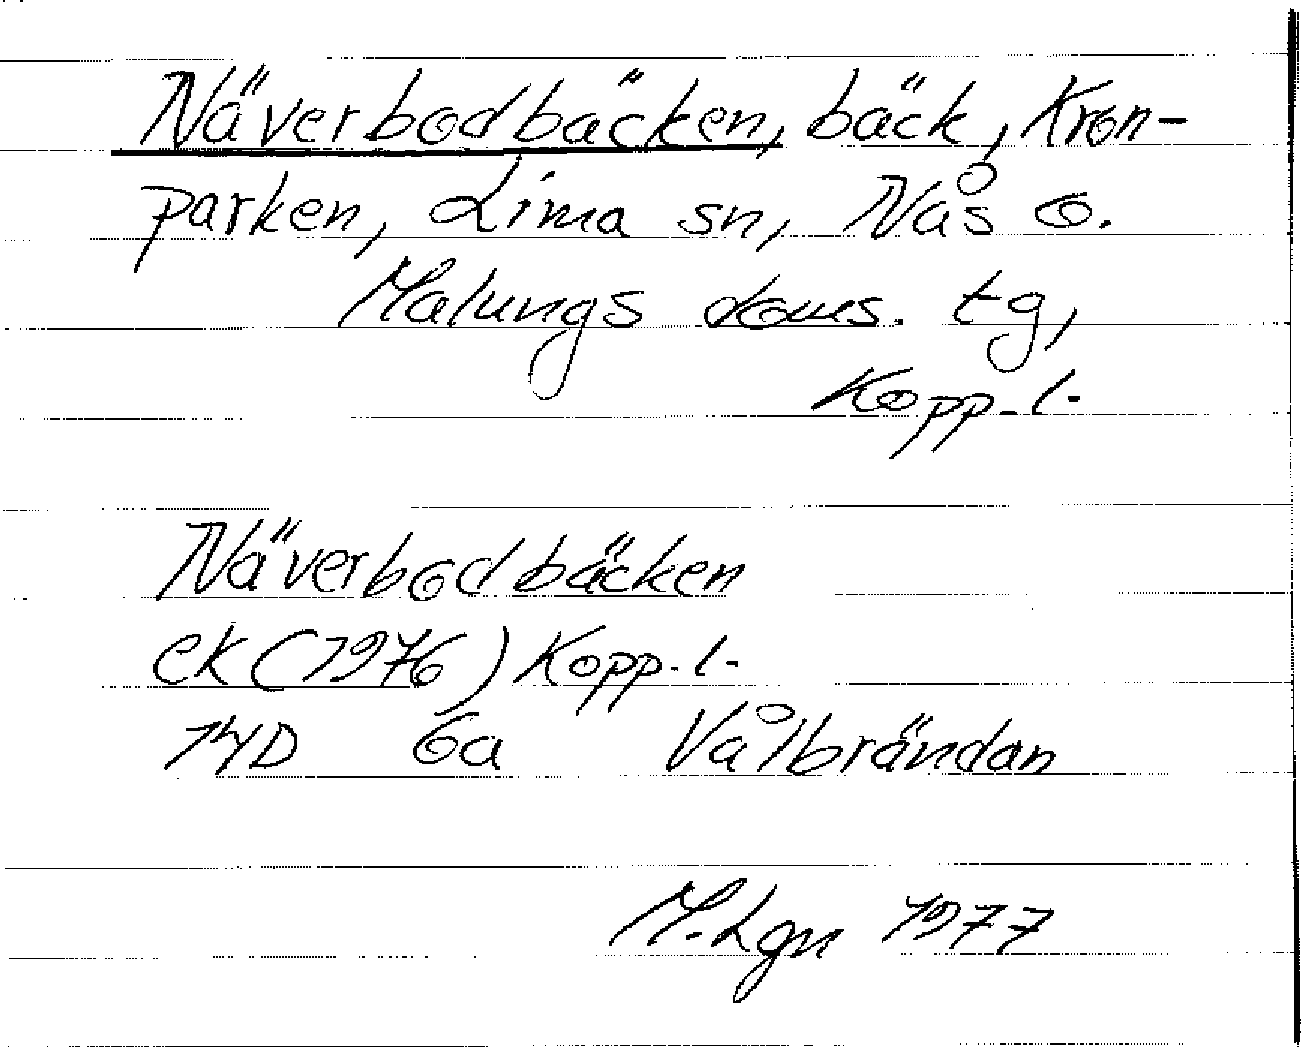 Näverbodbäcken, bäck, Kron-
parken, Lima sn, Nås o.
Malungs doms. tg,
Kopp. l.
Näverbodbäcken
ek (1976) Kopp. l.
14D 6a Vålbrändan
M. Lgn 1977